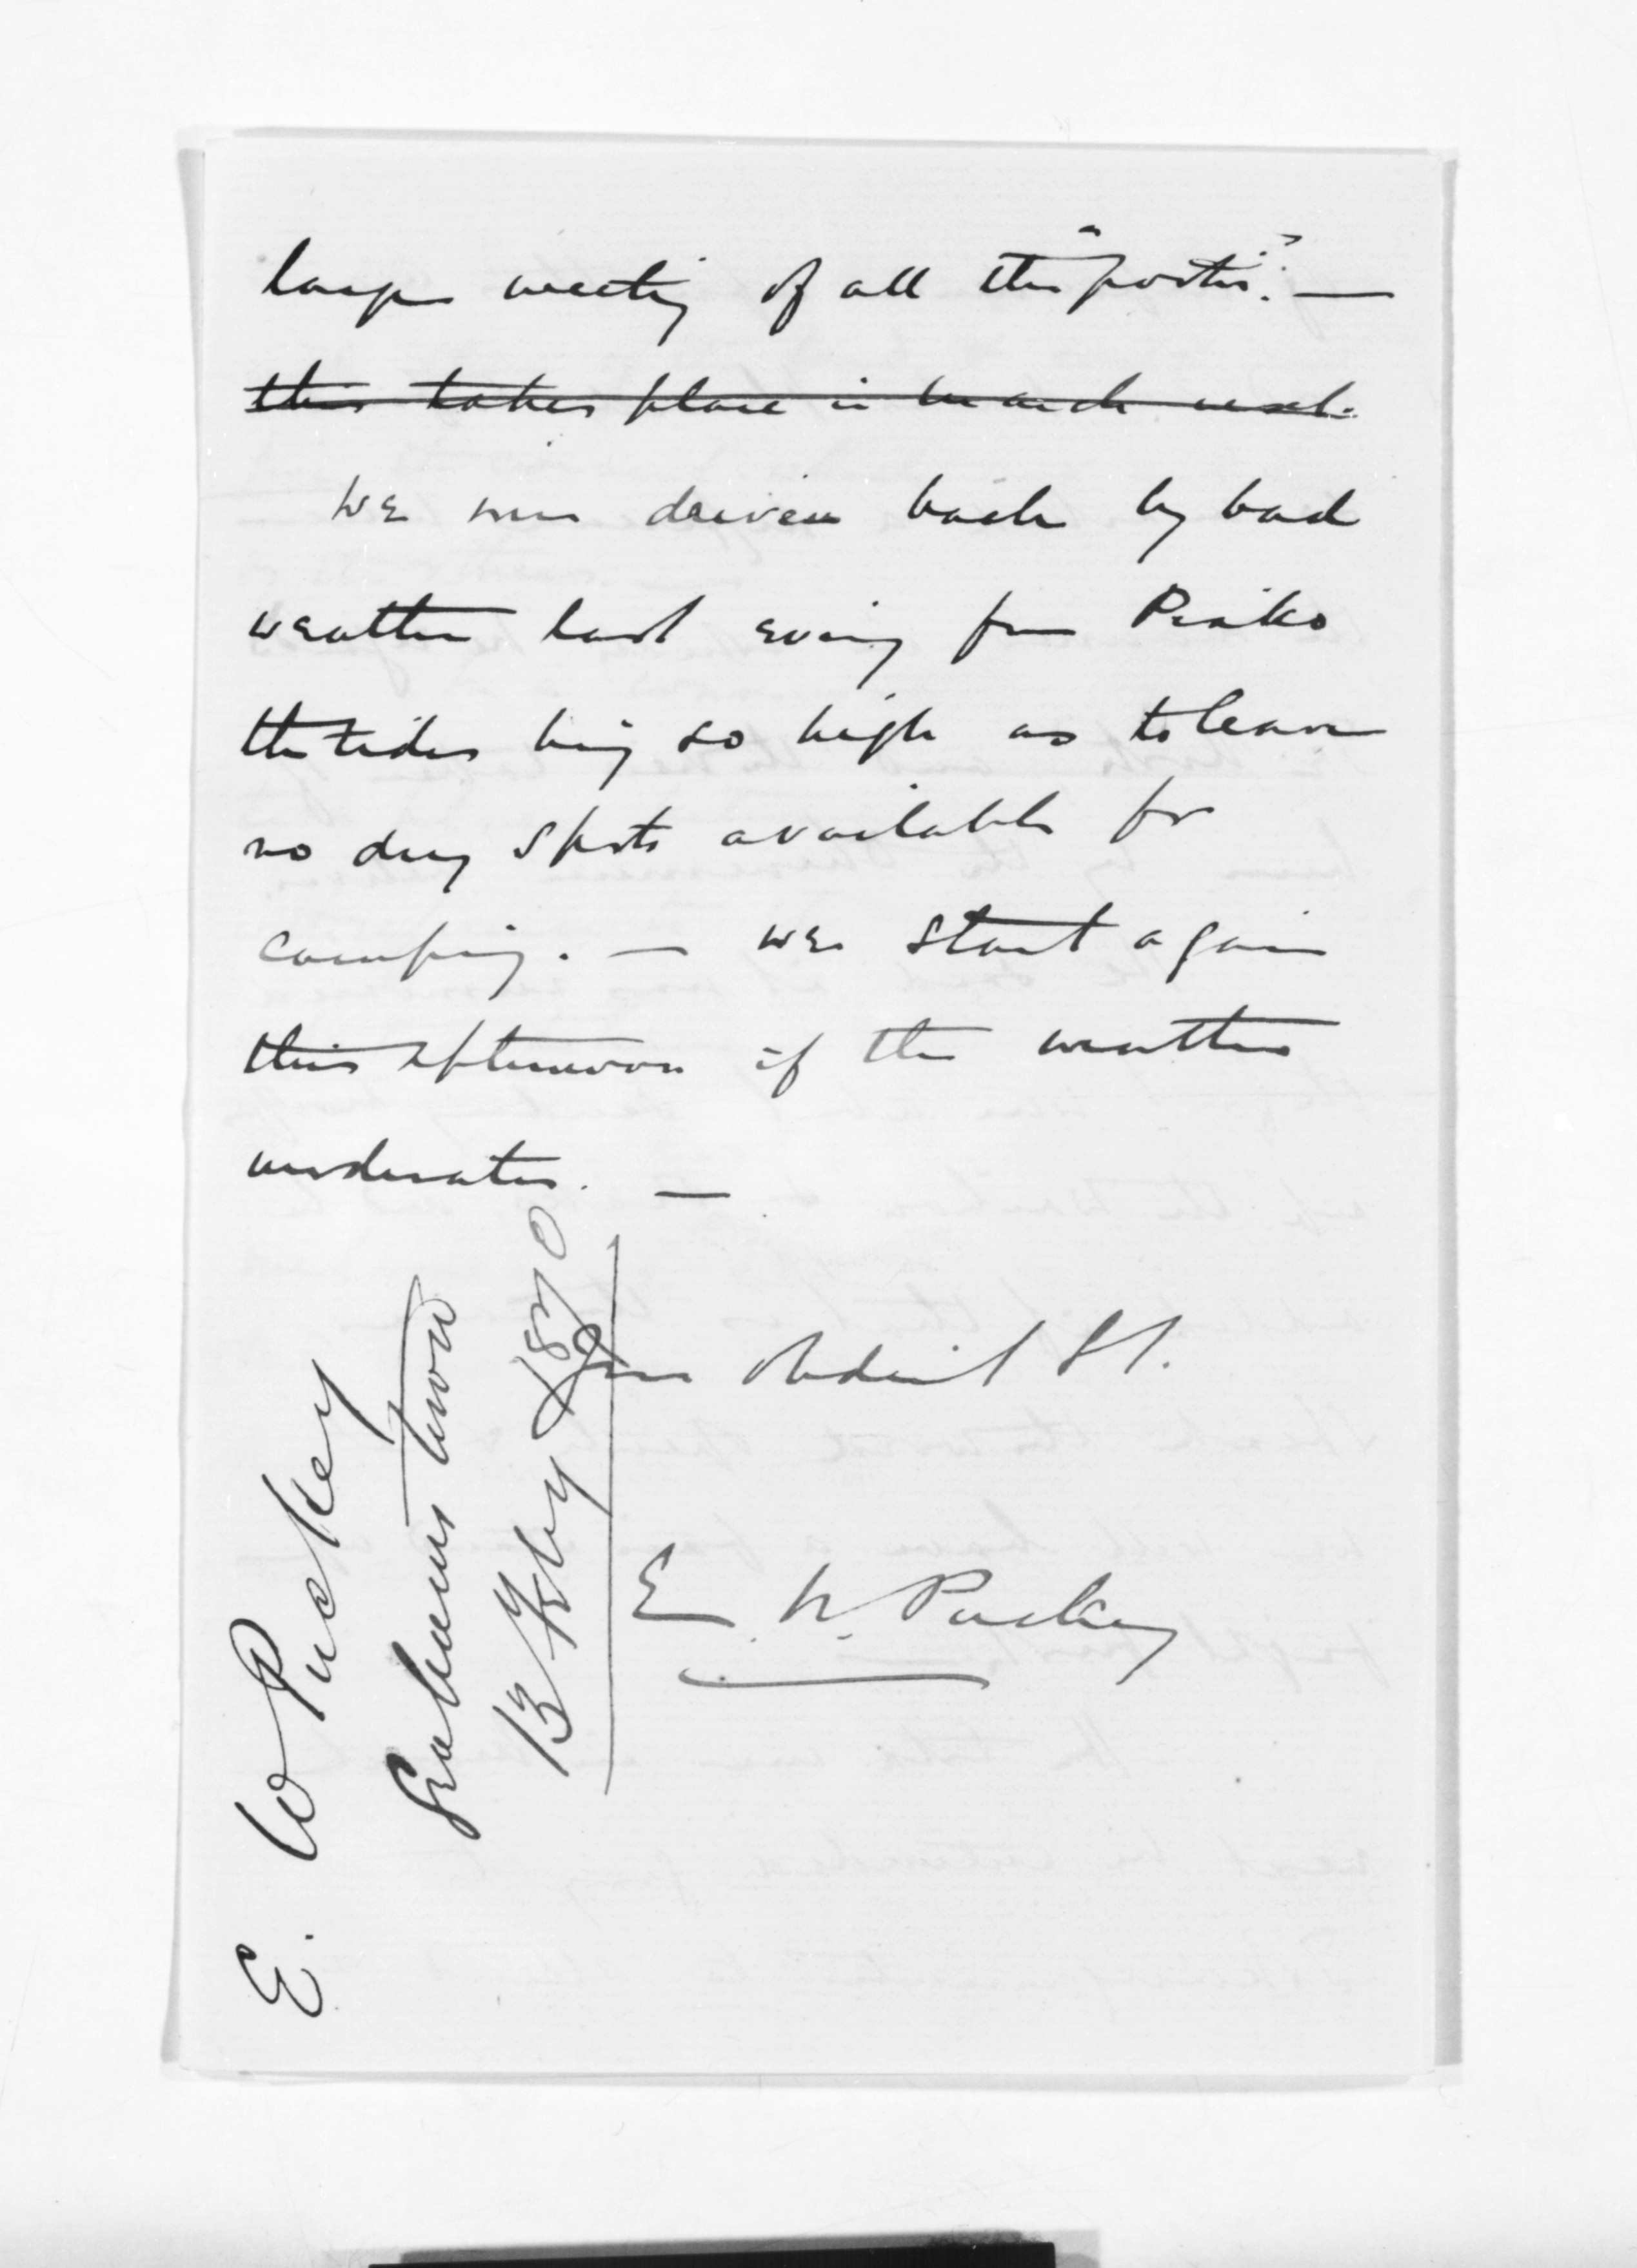 large meeting of all the "posti". —
this takes place in March next.
We were driven back by bad
weather last evening from Piako
the tides being so high as to leave
no dry spots available for
camping. — we start again
this afternoon if the weather
moderates. —
Your obedient St.
E. W. Puckey
E. W Puckey
Grahams town
13 Feby 1870